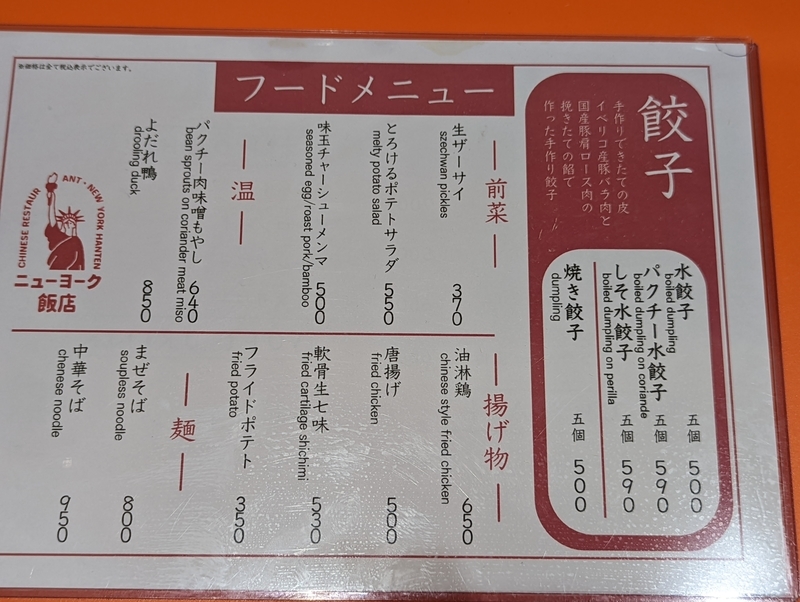 ※価格は全て税込表示でございます。
フードメニュー
餃子
手作りできたての皮
イベリコ産豚バラ肉と
国産豚肩ロース肉の
挽きたての餡で
作った手作り餃子
水餃子 五個 500
boiled dumpling
パクチー水餃子 五個 590
boiled dumpling on coriande
しそ水餃子 五個 590
boiled dumpling on perilla
焼き餃子 五個 500
dumpling
前菜
生ザーサイ 370
szechwan pickles
とろけるポテトサラダ 550
melty potato salad
味玉チャーシューメンマ 500
seasoned egg/roast pork/bamboo
温
パクチー肉味噌もやし 640
bean sprouts on coriander meat miso
よだれ鴨 850
drooling duck
揚げ物
油淋鶏 650
chinese style fried chicken
唐揚げ 500
fried chicken
軟骨生七味 530
fried cartilage shichimi
フライドポテト 350
fried potato
麺
まぜそば 800
soupless noodle
中華そば 950
chenese noodle
CHINESE RESTAURANT・NEW YORK HANTEN
ニューヨーク
飯店